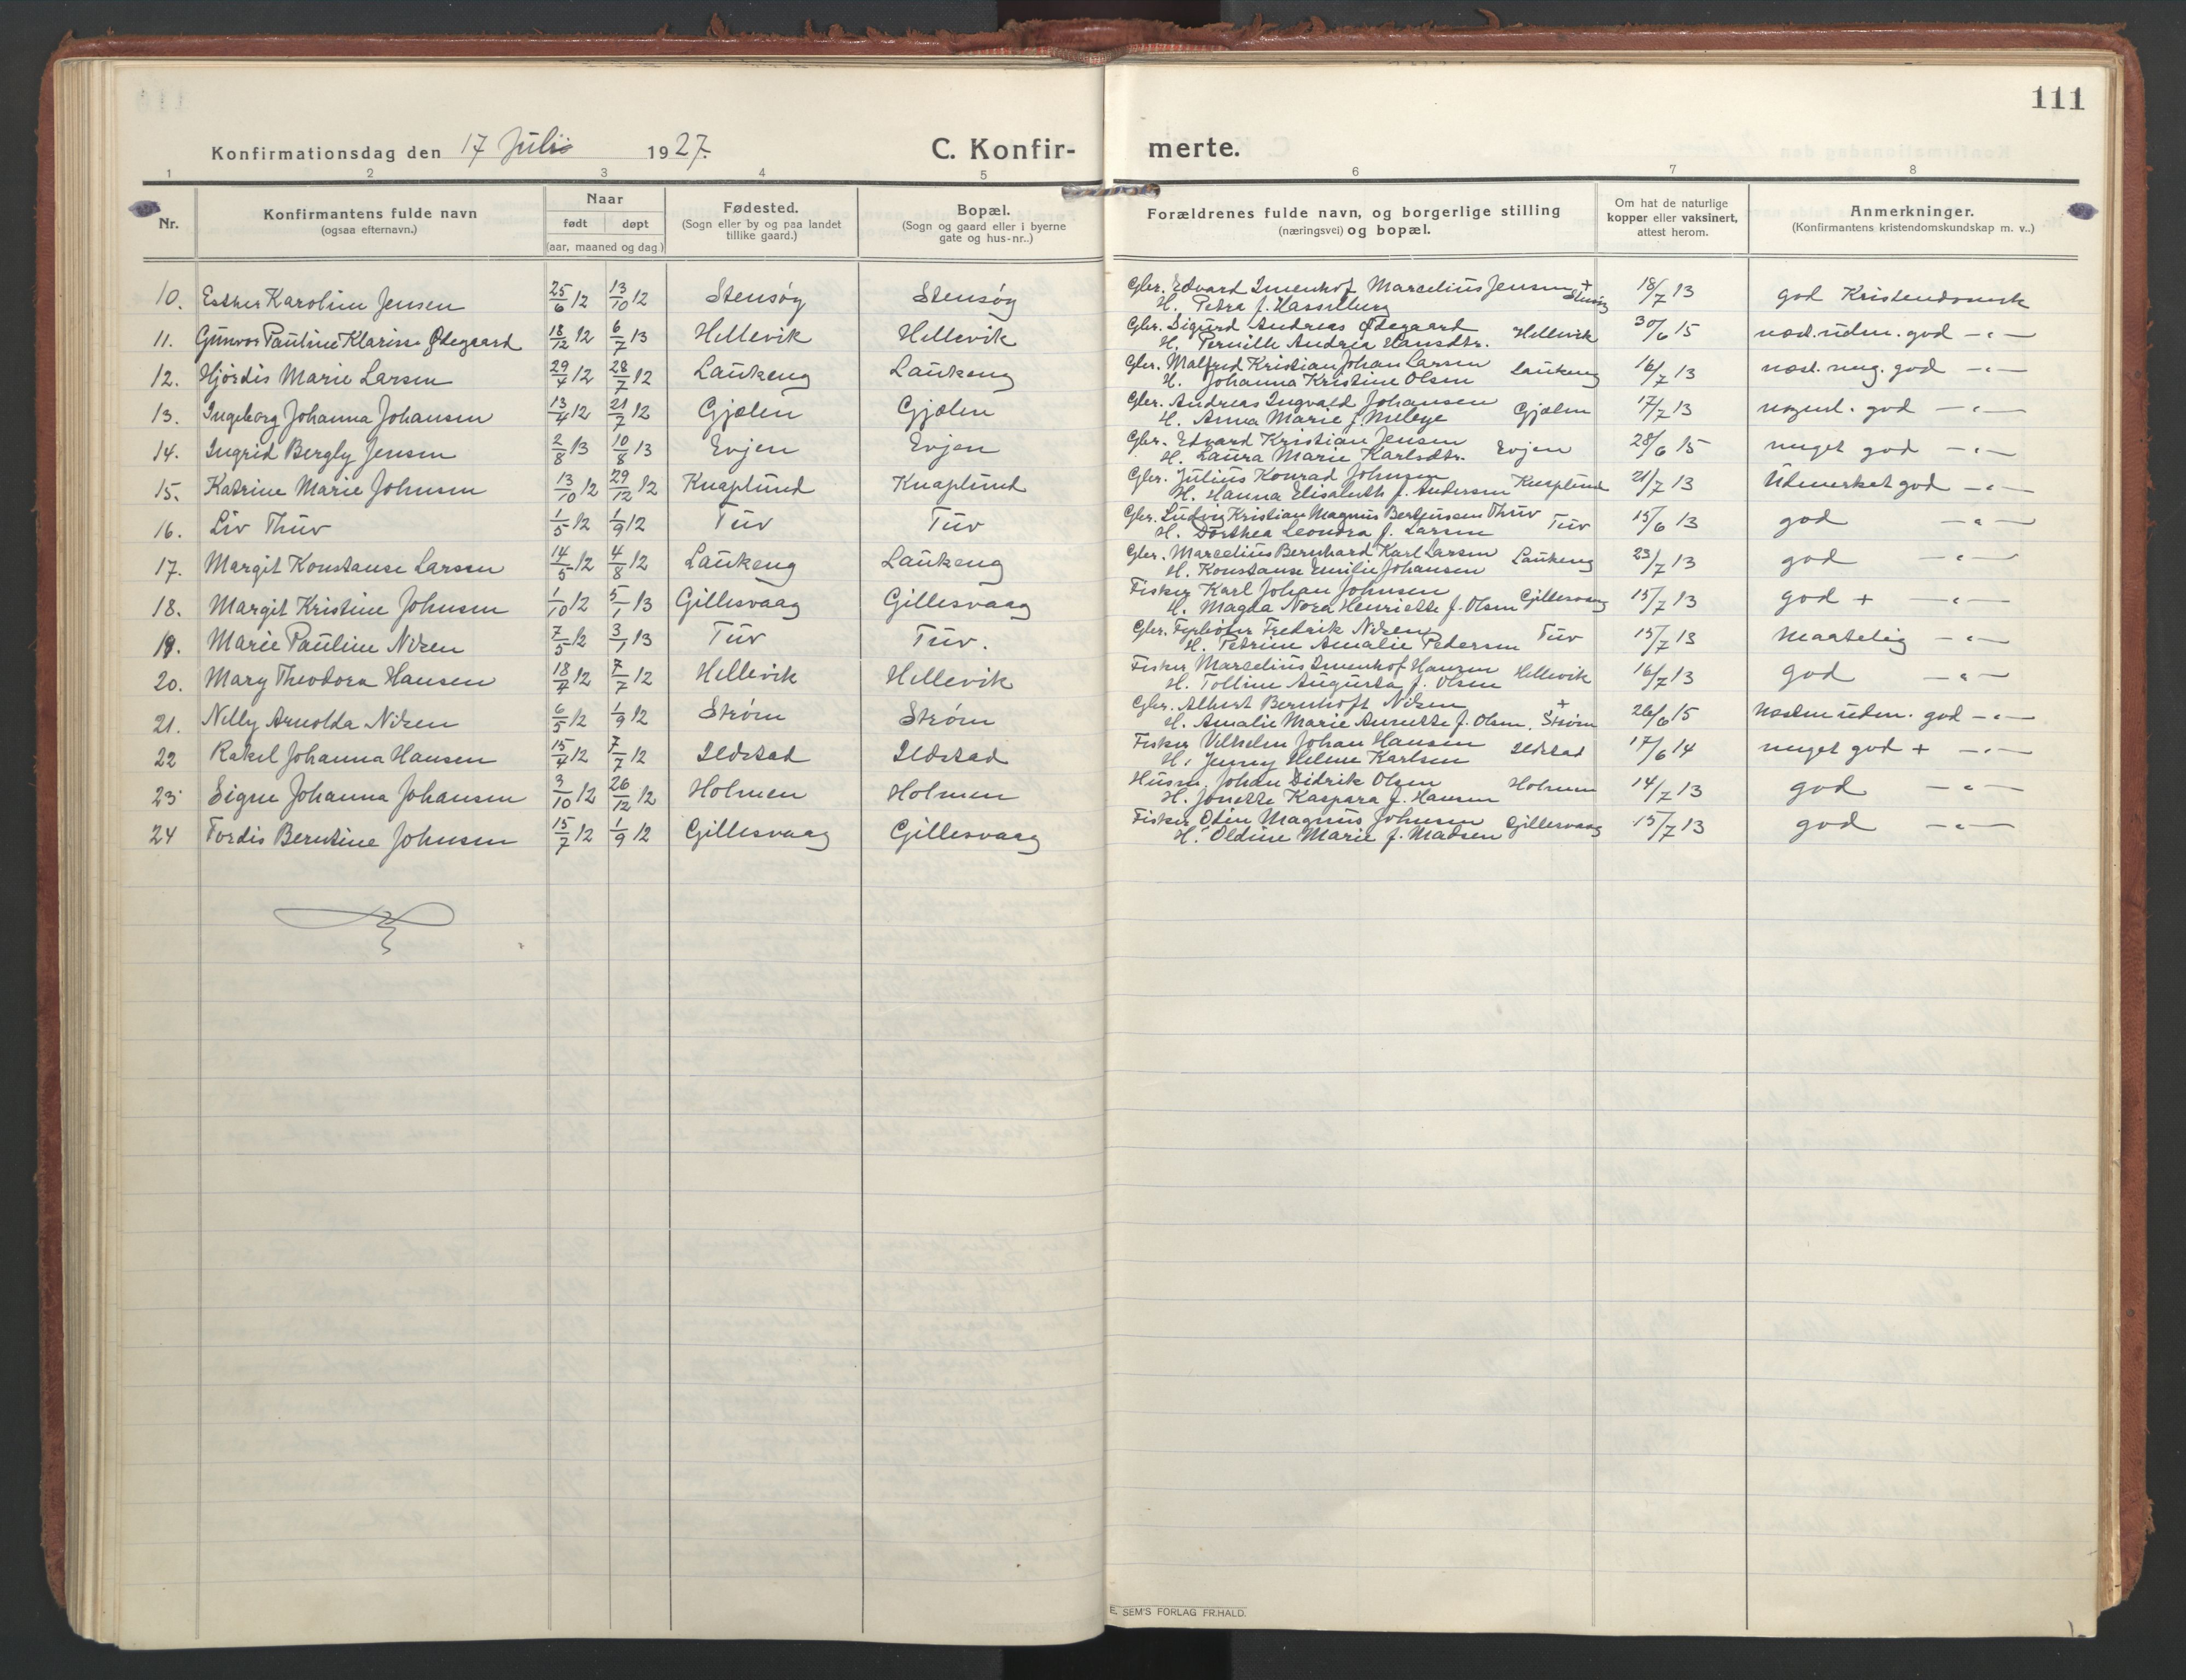 111
Konfirmationsdag den 17 Juli 1927.
C. Konfir-
merte.
1 2 3 4 5 6 7 8
Nr.
Konfirmantens fulde navn
(ogsaa efternavn.)
Naar
født døpt
(aar, maaned og dag)
Fødested.
(Sogn eller by og paa landet
tillike gaard.)
Bopæl.
(Sogn og gaard eller i byerne
gate og hus-nr..)
Forældrenes fulde navn, og borgerlige stilling
(næringsvei) og bopæl.
Om hat de naturlige
kopper eller vaksinert,
attest herom.
Anmerkninger.
(Konfirmantens kristendomskundskap m. v..)
10. Esther Karoline Jensen 25/6 12 13/10 12 Stensøy Stensøy Gbr. Edvard Imenhof Marcelius Jensen +
H. Petra f. Hasselberg Stensøy 18/7 13 god Kristendomsk
11. Gunvor Pauline Klarisse Ødegaard 18/12 12 6/7 13 Hellevik Hellevik Gbr. Sigurd Andreas Ødegaard
H. Pernille Andrea Hansdtr. Hellevik 30/6 15 næst. uden. god — " —
12. Hjördis Marie Larsen 29/4 12 28/7 12 Laukeng Laukeng Gbr. Malfred Kristian Johan Larsen
H. Johanna Kristine Olsen Laukeng 16/7 13 næst. meg. god — " —
13. Ingeborg Johanna Johansen 13/4 12 21/7 12 Gjælen Gjælen Gbr. Andreas Ingvald Johansen
H. Anna Marie f. Meløye Gjælen 17/7 13 god — " —
14. Ingrid Bergly Jensen 2/8 13 10/8 13 Evjen Evjen Gbr. Edvard Kristian Jensen
H. Laura Marie Karlsdtr. Evjen 28/6 15 meget god — " —
15. Katrine Marie Johnsen 13/10 12 29/12 12 Knaplund Knaplund Gbr. Julius Konrad Johnsen
H. Hanna Elisabeth f. Andersen Knaplund 21/7 13 Udmerket god — " —
16. Liv Thuv 1/5 12 1/9 12 Tuv Tuv Gbr. Ludvig Kristian Magnus Berteussen Thuv
H. Dorthea Leonora f. Larsen Tuv 15/6 13 god — " —
17. Margit Konstanse Larsen 14/5 12 4/8 12 Laukeng Laukeng Gbr. Marcelius Bernhard Karl Larsen
H. Konstanse Emilie Johansen Laukeng 23/7 13 god — " —
18. Margit Kristine Johnsen 1/10 12 5/1 13 Gillesvaag Gillesvaag Fisker Karl Johan Johnsen
H. Magda Nora Henriette f. Olsen Gillesvaag 15/7 13 god + — " —
19. Marie Pauline Nizen 7/5 12 3/1 13 Tuv Tuv. Gbr. Fredrik Nizen
H. Petrine Amalie Pedersen Tuv 15/7 13 maatelig — " —
20. Mary Theodora Hansen 18/4 12 7/7 12 Hellevik Hellevik Fisker Marcelius Imenhof Hansen
H. Tolline Augusta f. Olsen Hellevik 16/7 13 god — " —
21. Nelly Arnolda Nizen 6/5 12 1/9 12 Strøm Strøm Gbr. Albert Bernhoft Nizen +
H. Amalie Marie Annette f. Olsen. Strøm 26/6 15 Næsten uden. god — " —
22 Rakel Johanna Hansen 15/4 12 7/7 12 Ildstad Ildstad Fisker Vilhelm Johan Hansen
H. Jenny Helene Karlsen Ildstad 17/6 14 meget god + — " —
23 Signe Johanna Johansen 3/10 12 26/12 12 Holmen Holmen Husm. Johan Didrik Olsen
H. Jonette Kaspara f. Hansen Holmen 14/7 13 god — " —
24 Tordis Berntine Johnsen 15/7 12 1/9 12 Gillesvaag Gillesvaag Fisker Odin Magnus Johnsen
H. Oldine Marie f. Madsen Gillesvaag 15/7 13 god — " —
E. SEM'S FORLAG FR.HALD.